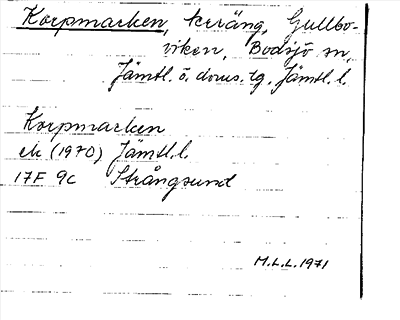 Korpmarken, terräng, Gullbo-
viken, Bodsjö sn,
Jämtl. ö. doms. tg. Jämtl. l.
Korpmarken
ek (1970) Jämtl. l.
17F 9c Strångsund
M.L.L. 1971